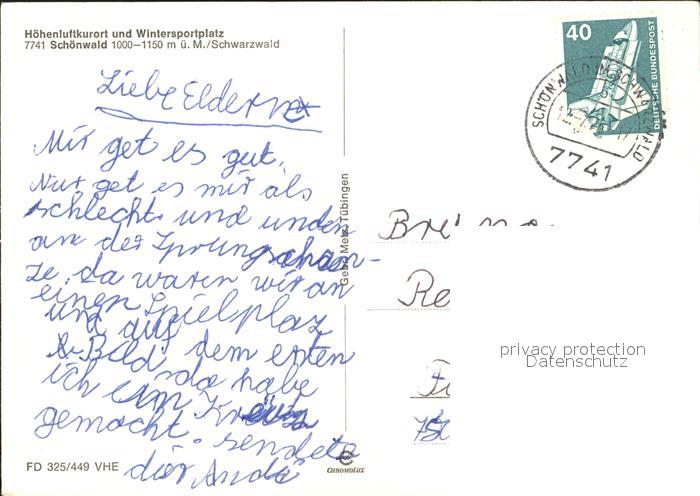 Höhenluftkurort und Wintersportplatz
7741 Schönwald 1000–1150 m ü. M./Schwarzwald
40
DEUTSCHE BUNDESPOST
7741
Liebe Eldern
Mir get es gut.
Nur get es mir als
schlecht. und unden
an der Sprungschan-
ze, da waren wir an
einen Spielplaz
und auf
Bild, dem ersten
ich da habe
ein Kreuz
gemacht. sendete
dir Andi
Gebr. Metz, Tübingen
Bre
Re
privacy protection
Datenschutz
FD 325/449 VHE
CHROMOLUX